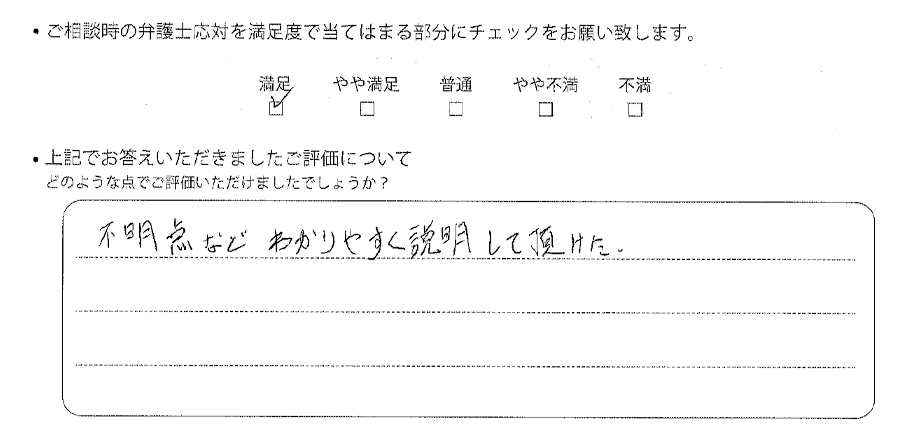 ・ご相談時の弁護士応対を満足度で当てはまる部分にチェックをお願い致します。
満足 やや満足 普通 やや不満 不満
☑ □ □ □ □
・上記でお答えいただきましたご評価について
どのような点でご評価いただけましたでしょうか？
不明点など わかりやすく説明して頂けた。